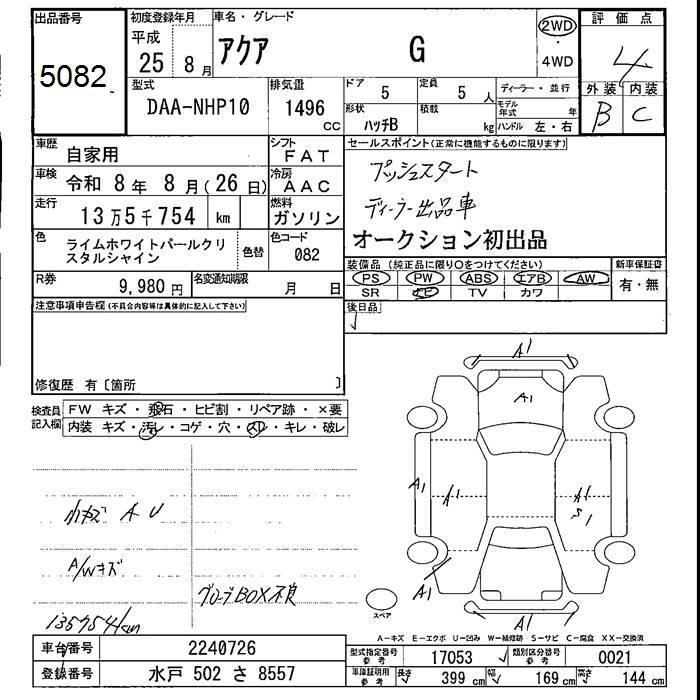 出品番号 初度登録年月 車名・グレード 2WD・4WD 評価点
5082 平成 25 8月 アクア G 4
型式 排気量 ドア 5 定員 5人 ディーラー・並行 外装 内装
DAA-NHP10 1496 CC 形状 ハッチB 積載 kg モデル年式 年 ハンドル 左・右 B C
車歴 自家用 シフト FAT セールスポイント(正常に機能するものに限ります)
車検 令和 8年 8月(26日) 冷房 AAC プッシュスタート
走行 13万5千754 km 燃料 ガソリン ディーラー出品車
色 ライムホワイトパールクリスタルシャイン 色替 色コード 082 オークション初出品
R券 9,980円 名変通知期限 月 日 装備品(純正品に限り○をつけてください) 新車保証書
PS PW ABS エアB AW 有・無
SR ナビ TV カワ
注意事項申告欄(不具合内容等は具体的に記入して下さい) 後日品
修復歴 有〔箇所 〕
検査員記入欄 FW キズ・飛石・ヒビ割・リペア跡・×要
内装 キズ・汚レ・コゲ・穴・スレ・キレ・破レ
小キズ A U
A/Wキズ
グローブBOX不良
135754km
A1
A1
A1 A1 A1
S1
A1
A1
スペア
A-キズ E-エクボ U-凹み W-補修跡 S-サビ C-腐食 XX-交換済
車台番号 2240726 型式指定番号 参考 17053 類別区分番号 参考 0021
登録番号 水戸 502 さ 8557 車庫証明用 参考 長さ 399 cm 幅 169 cm 高さ 144 cm